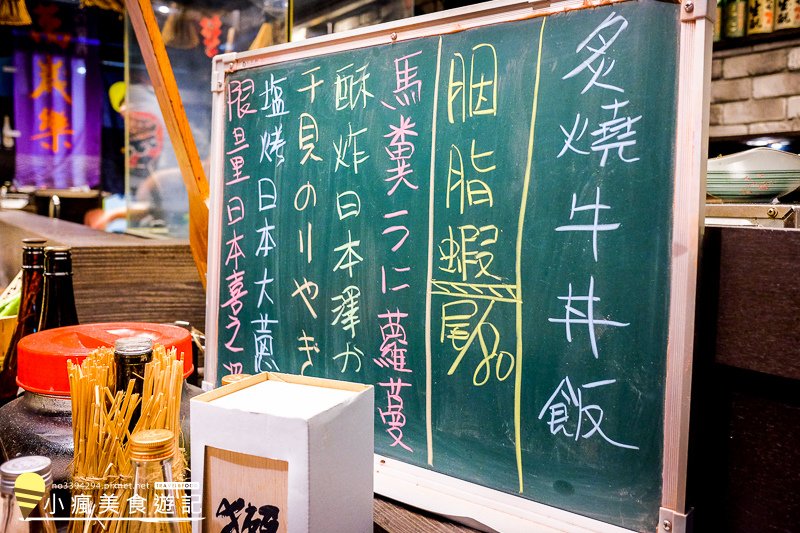 炙燒牛丼飯
胭脂蝦
尾/80
馬糞うに蘿蔓
酥炸日本澤か
干貝のりやき
塩烤日本大蔥
限量日本喜之
no3394294.pixnet.net
小瘋美食遊記